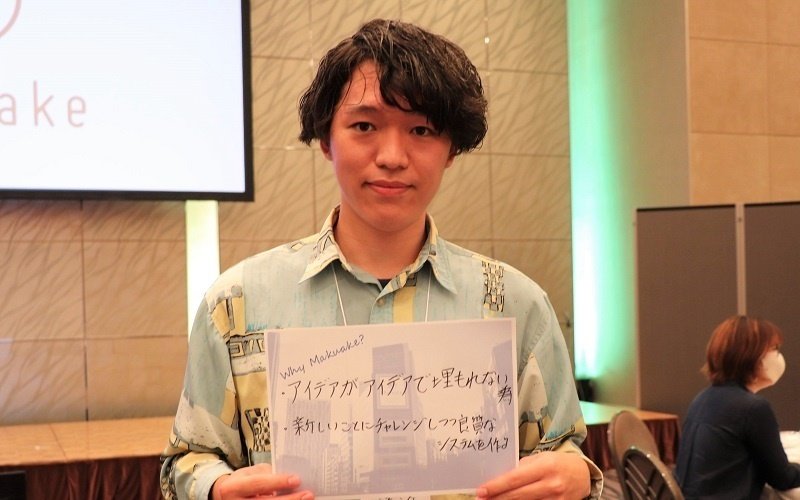 ake
Why Makuake?
・アイデアがアイデアで埋もれない
・新しいことにチャレンジしつつ良質な
システムを作る